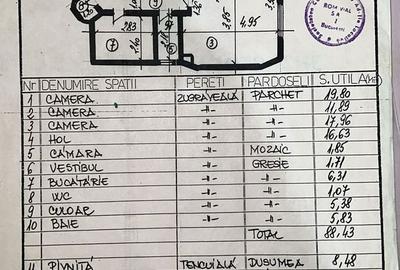 2.83
7
5
3
3.85
4.95
ROMVIAL
SA
Bucuresti
Nr DENUMIRE SPATII PERETI PARDOSELI S.UTILA(m²)
1 CAMERA ZUGRAVEALĂ PARCHET 19,80
2 CAMERA -11- -11- 11,89
3 CAMERA -11- -11- 17,96
4 HOL -11- -11- 16,63
5 CĂMARA -11- MOZAIC 1,85
6 VESTIBUL -11- GRESIE 1,71
7 BUCĂTĂRIE -11- -11- 6,31
8 WC -11- -11- 1,07
9 CULOAR -11- -11- 5,38
10 BAIE -11- -11- 5,83
TOTAL 88,43
11 PIVNIȚĂ TENCUIALĂ DUSUMEA 8,48